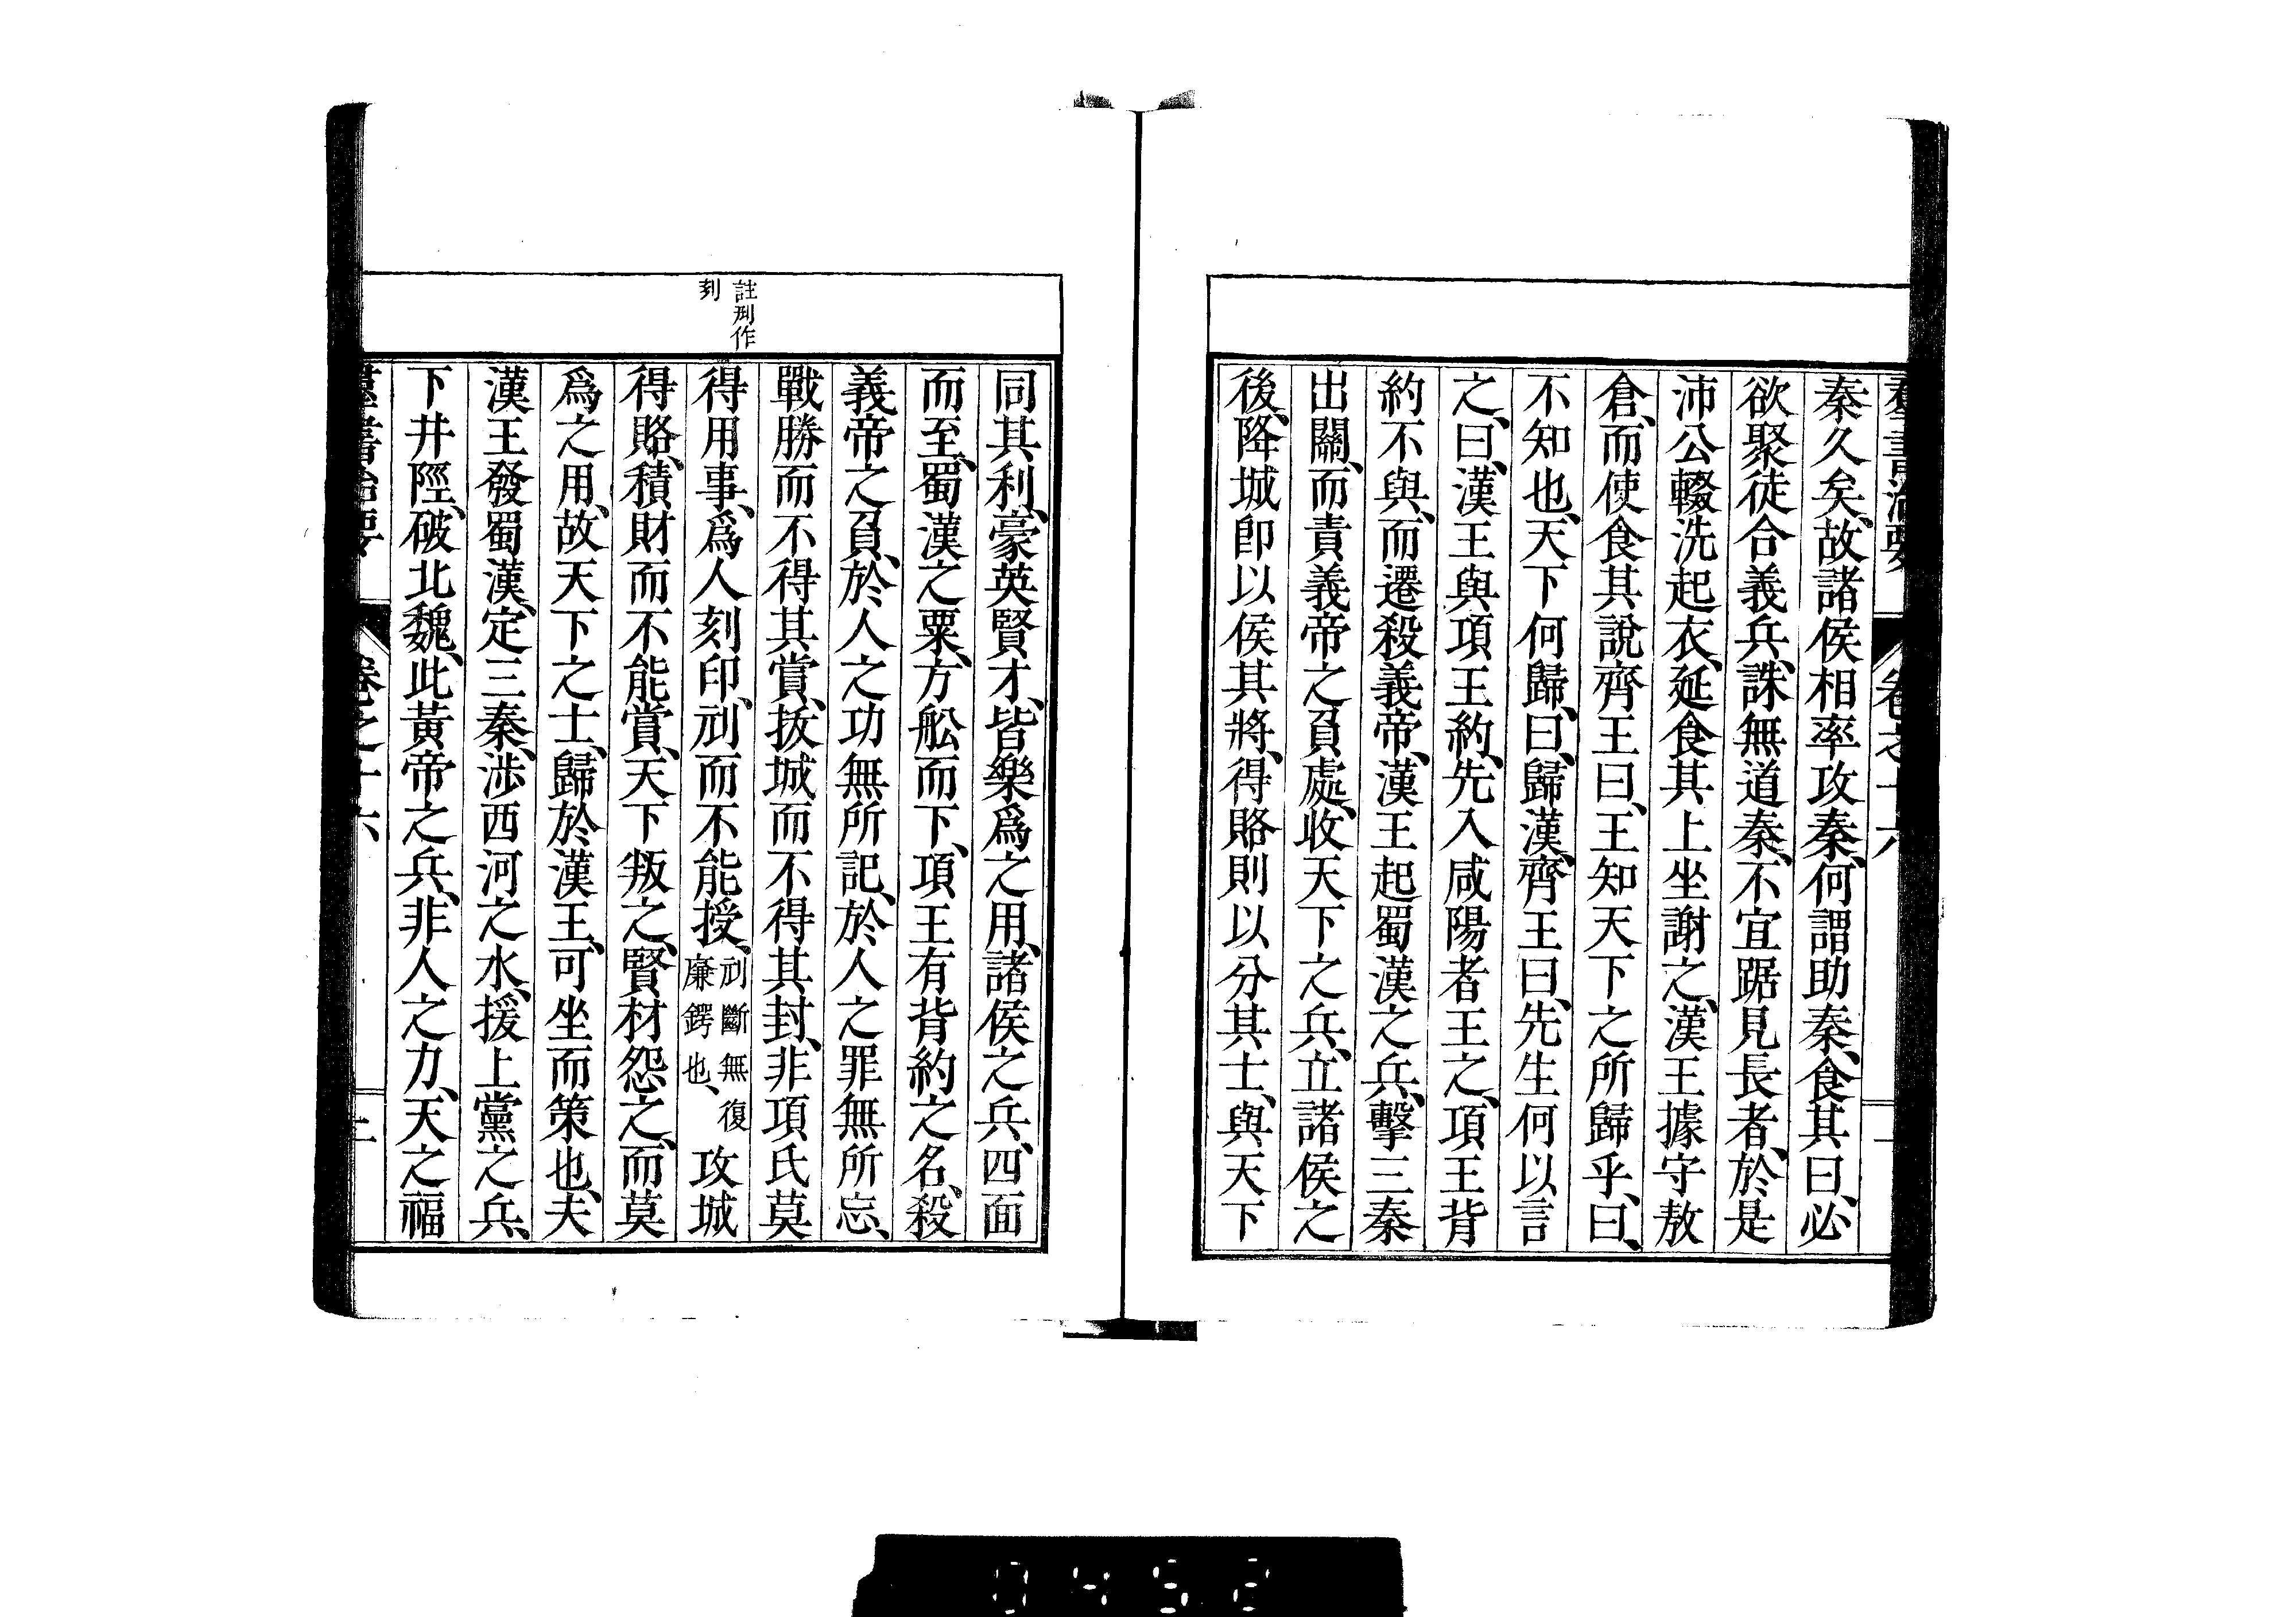 羣書治要 卷之十六
秦久矣、故諸侯相率攻秦、何謂助秦、食其曰、必
欲聚徒合義兵、誅無道秦、不宜踞見長者、於是
沛公輟洗起衣、延食其上坐謝之、漢王據守敖
倉、而使食其說齊王曰、王知天下之所歸乎、曰、
不知也、天下何歸、曰、歸漢、齊王曰、先生何以言
之、曰、漢王與項王約、先入咸陽者王之、項王背
約不與、而遷殺義帝、漢王起蜀漢之兵、擊三秦
出關、而責義帝之負處、收天下之兵、立諸侯之
後、降城卽以侯其將、得賂則以分其士、與天下
同其利、豪英賢才、皆樂爲之用、諸侯之兵、四面
而至、蜀漢之粟、方舩而下、項王有背約之名、殺
義帝之負、於人之功無所記、於人之罪無所忘、
戰勝而不得其賞、拔城而不得其封、非項氏莫
註刓作
刻
得用事、爲人刻印、刓而不能授、刓斷無復廉鍔也、攻城
得賂、積財而不能賞、天下叛之、賢材怨之、而莫
爲之用、故天下之士、歸於漢王、可坐而策也、夫
漢王發蜀漢、定三秦、涉西河之水、援上黨之兵、
下井陘、破北魏、此黃帝之兵、非人之力、天之福
羣書治要 卷之十六
0452